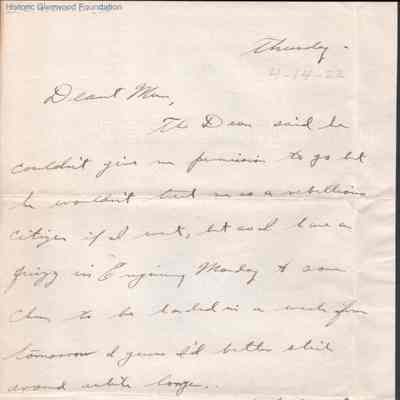 Historic Glenwood Foundation
Thursday -
4-14-22
Dearest Mum,
The Dean said he
couldn't give me permission to go but
he wouldn't treat me as a rebellious
citizen if I went, but as I have a
quizz in Engineering Monday & some
Chem to be handed in a week from
tomorrow I guess I'd better stick
around while longer..